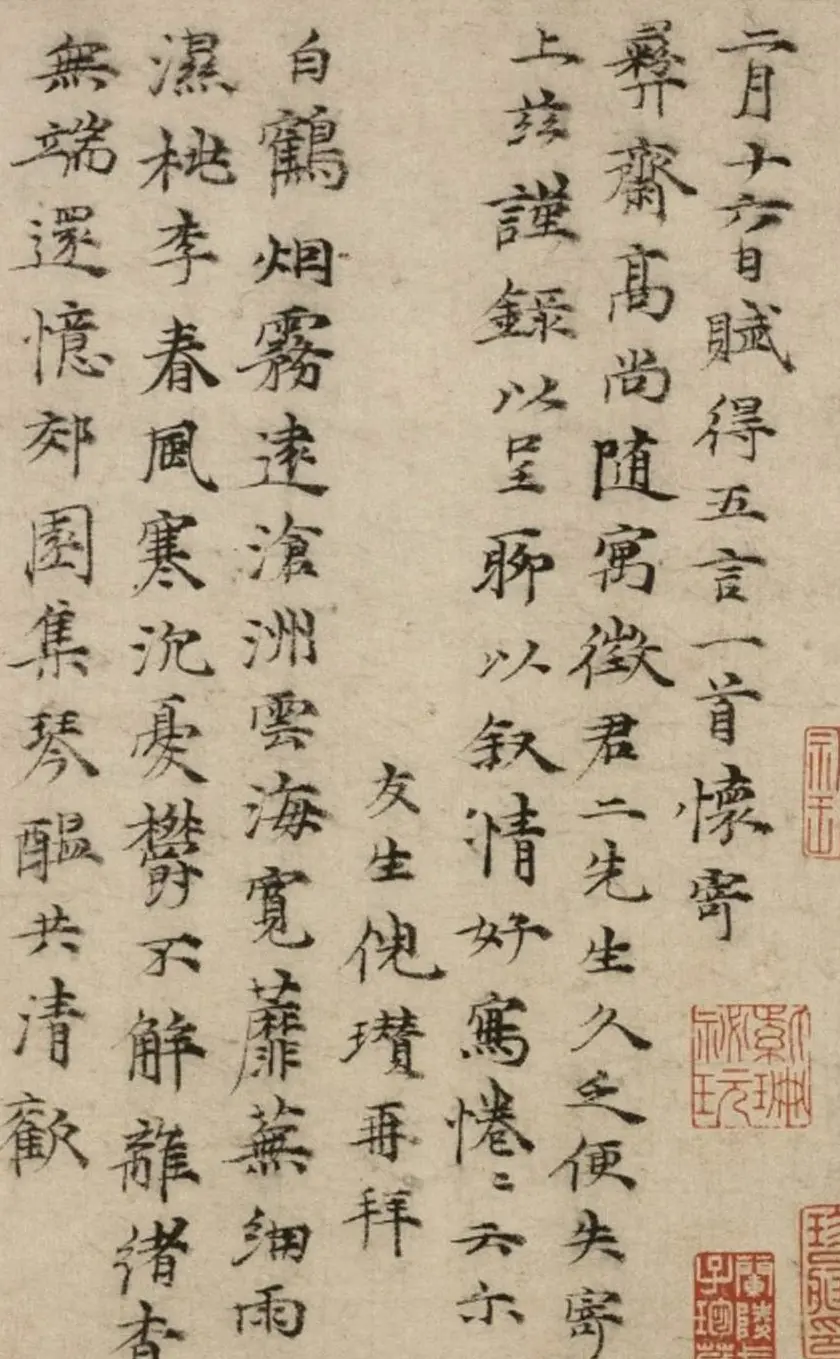 二月十六日賦得五言一首懷寄
彝齋高尚随寓徵君二先生久乏便失寄
上兹謹錄以呈聊以叙情好寫惓〻云尓
友生倪瓚再拜
白鶴烟霧遠滄洲雲海寬蘼蕪細雨
濕桃李春風寒沉憂鬱不解離緒杳
無端還憶郊園集琴醖共清歡